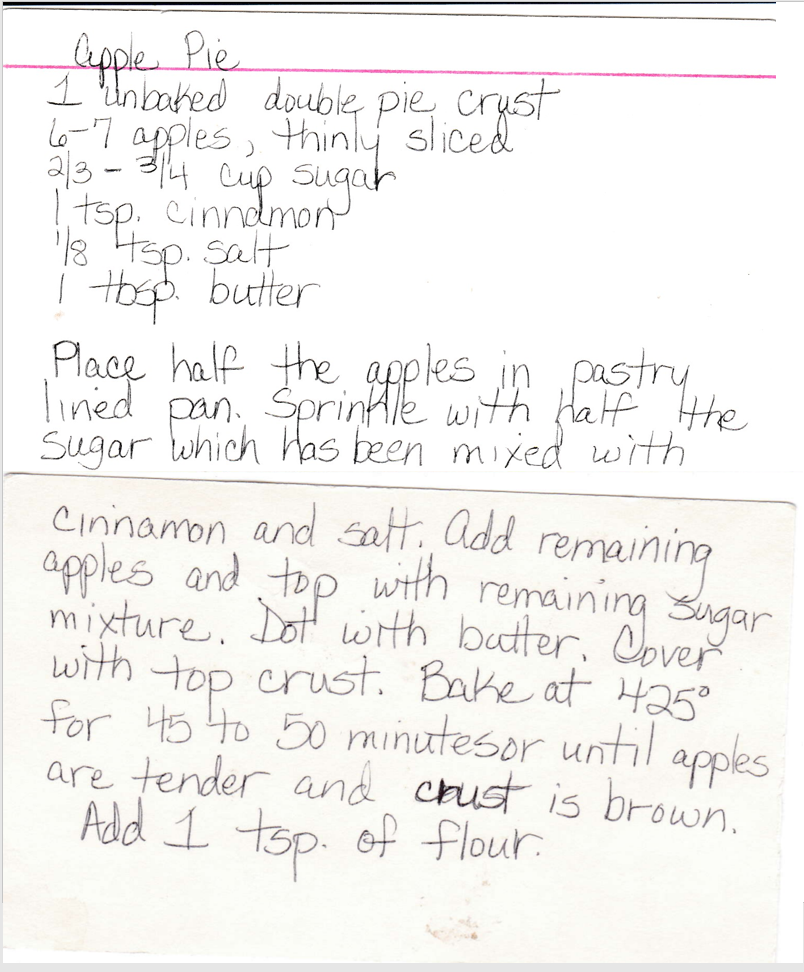 Apple Pie
1 unbaked double pie crust
6-7 apples, thinly sliced
2/3 - 3/4 cup sugar
1 tsp. cinnamon
1/8 tsp. salt
1 tbsp. butter
Place half the apples in pastry
lined pan. Sprinkle with half the
sugar which has been mixed with
cinnamon and salt. Add remaining
apples and top with remaining sugar
mixture. Dot with butter. Cover
with top crust. Bake at 425°
for 45 to 50 minutes or until apples
are tender and crust is brown.
Add 1 tsp. of flour.